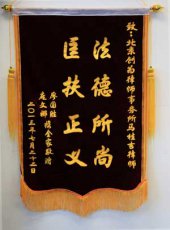 致：北京创为律师事务所马桂吉律师
法德所尚
匡扶正义
全家敬赠
二〇一三年七月二十二日